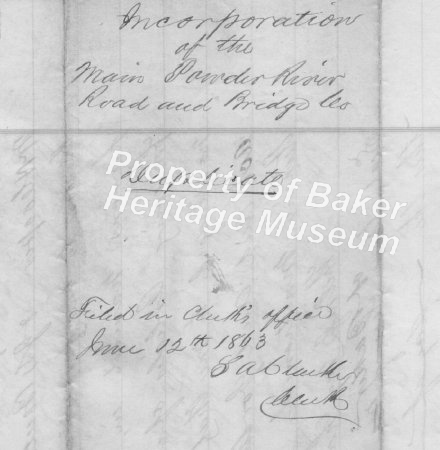 Incorporation
of the
Main Powder River
Road and Bridge Co
Duplicate
Property of Baker
Heritage Museum
Filed in Clerk's office
June 12th 1863
Clerk